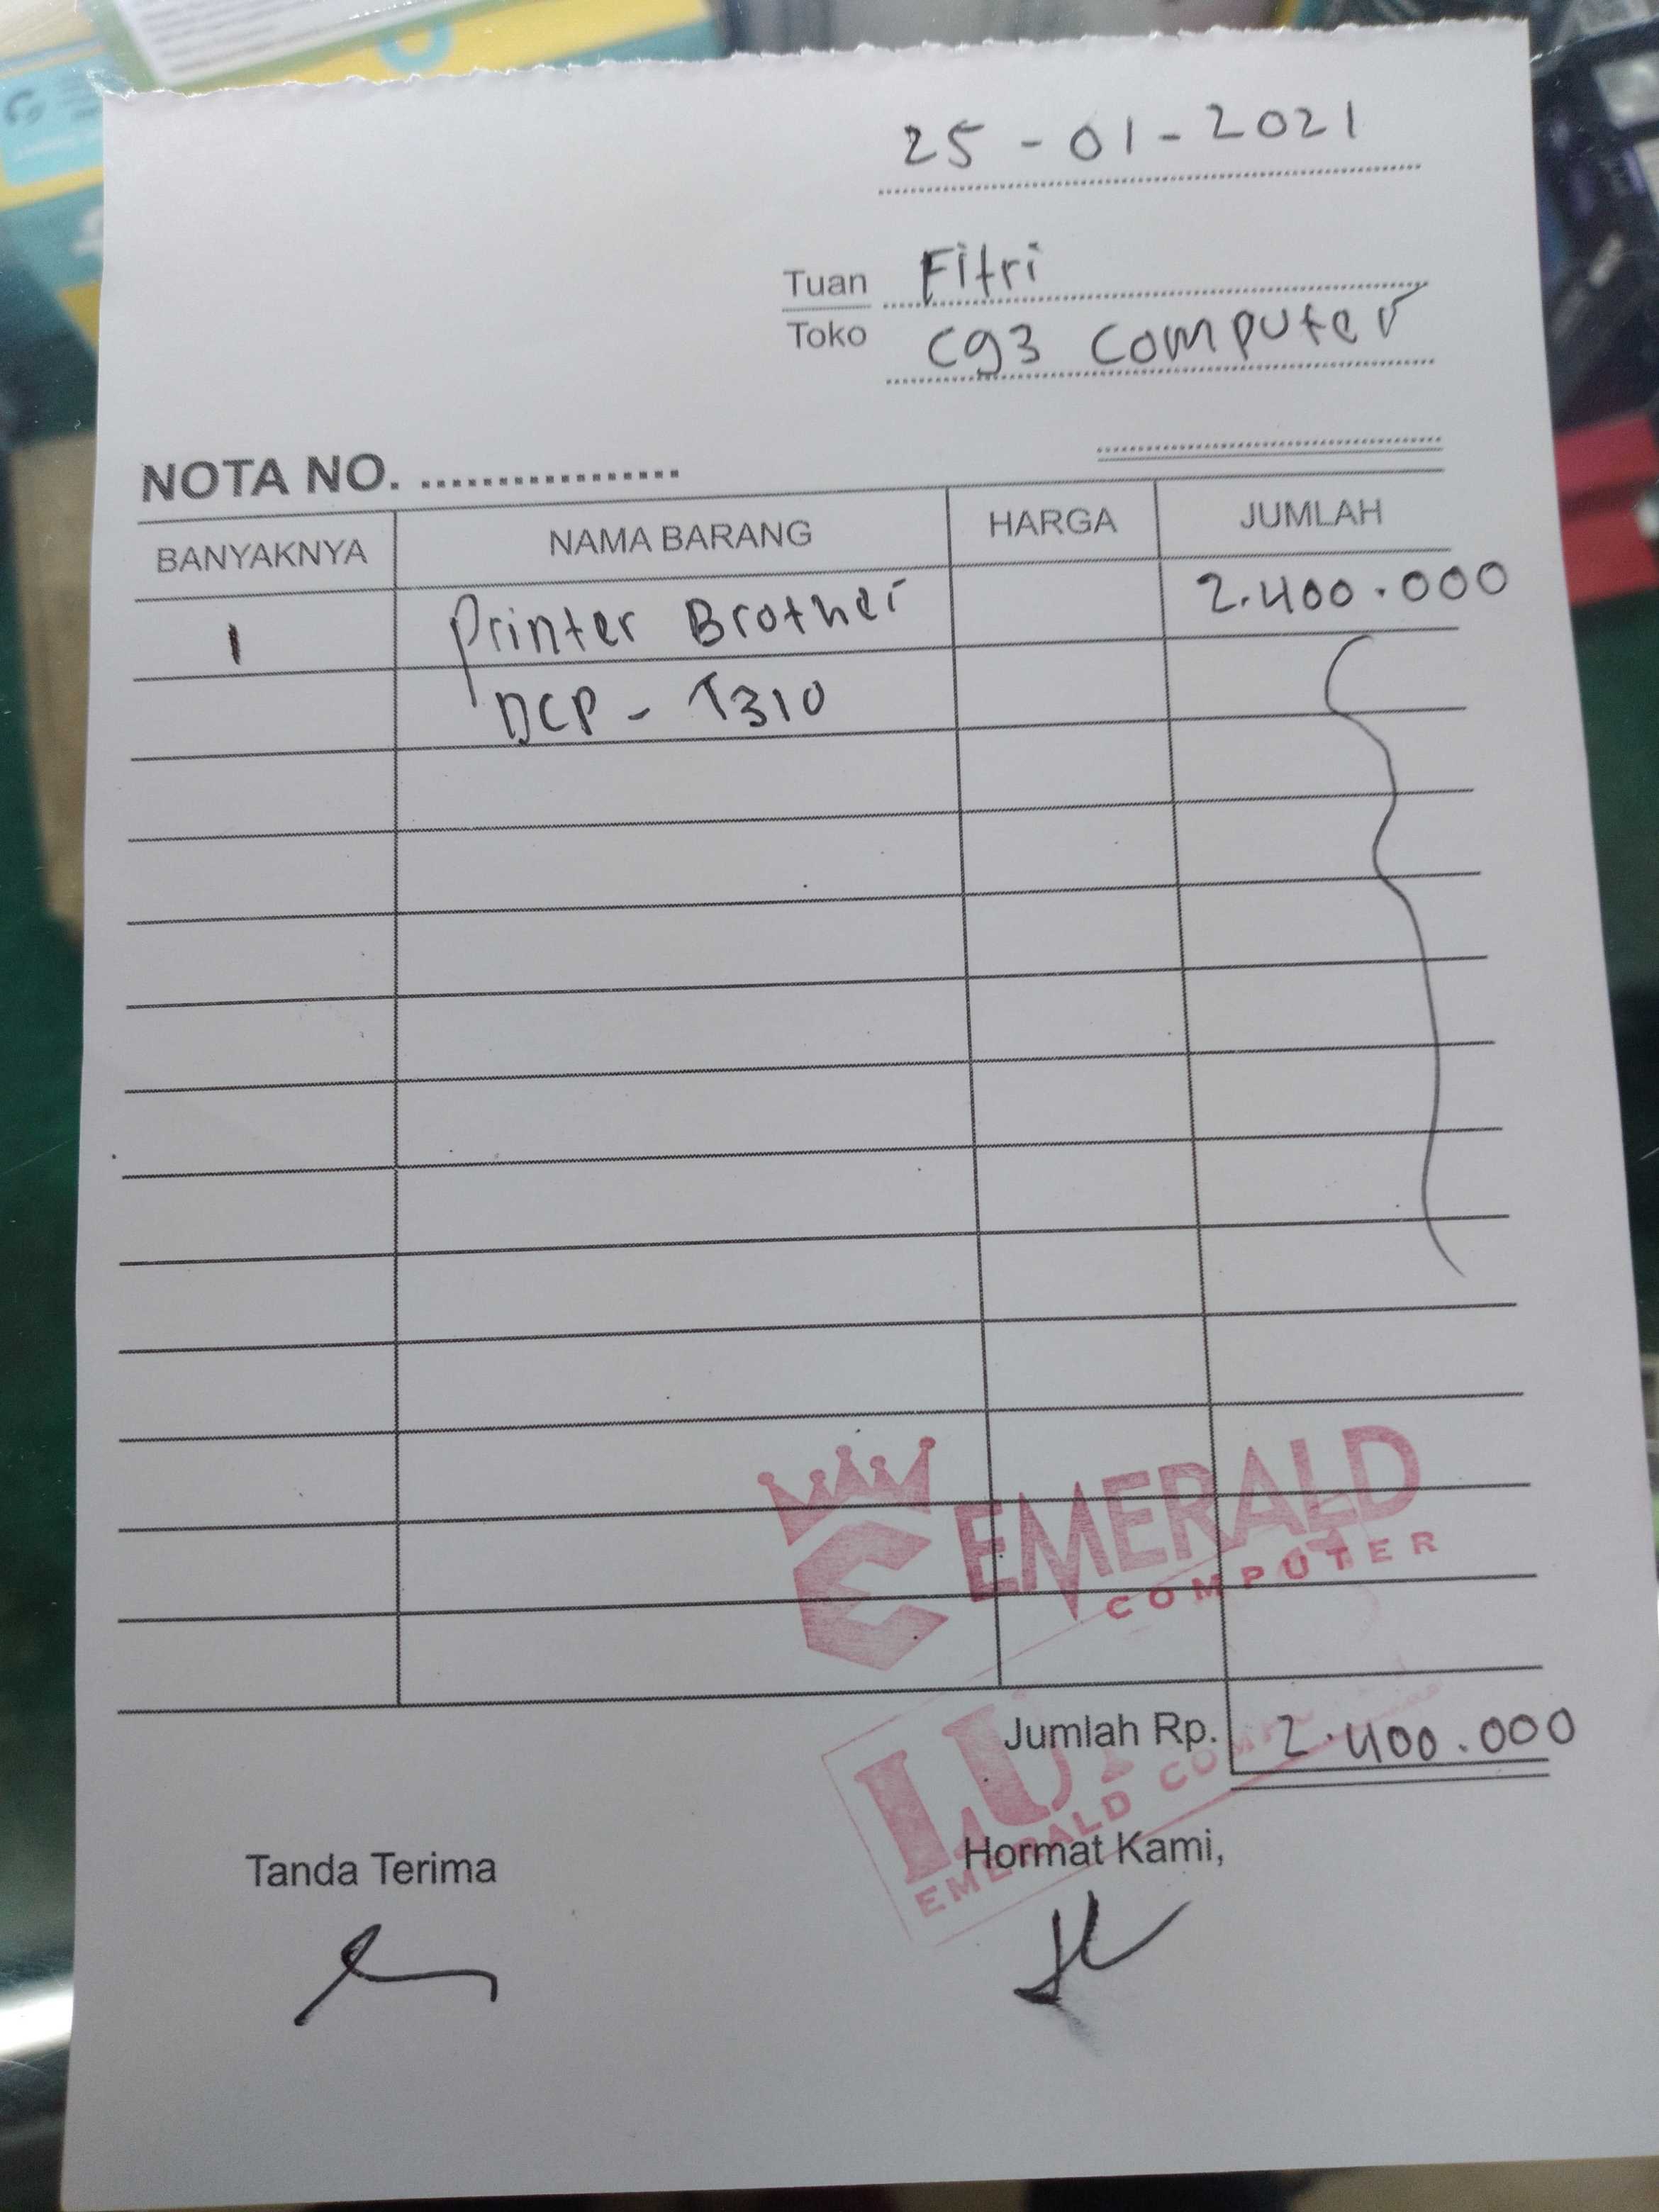 25 - 01 - 2021
Tuan Fitri
Toko Cg3 Computer
NOTA NO. .................
BANYAKNYA NAMA BARANG HARGA JUMLAH
1 Printer Brother 2.400.000
DCP - T310
EMERALD
COMPUTER
Jumlah Rp. 2.400.000
EMERALD
Tanda Terima Hormat Kami,